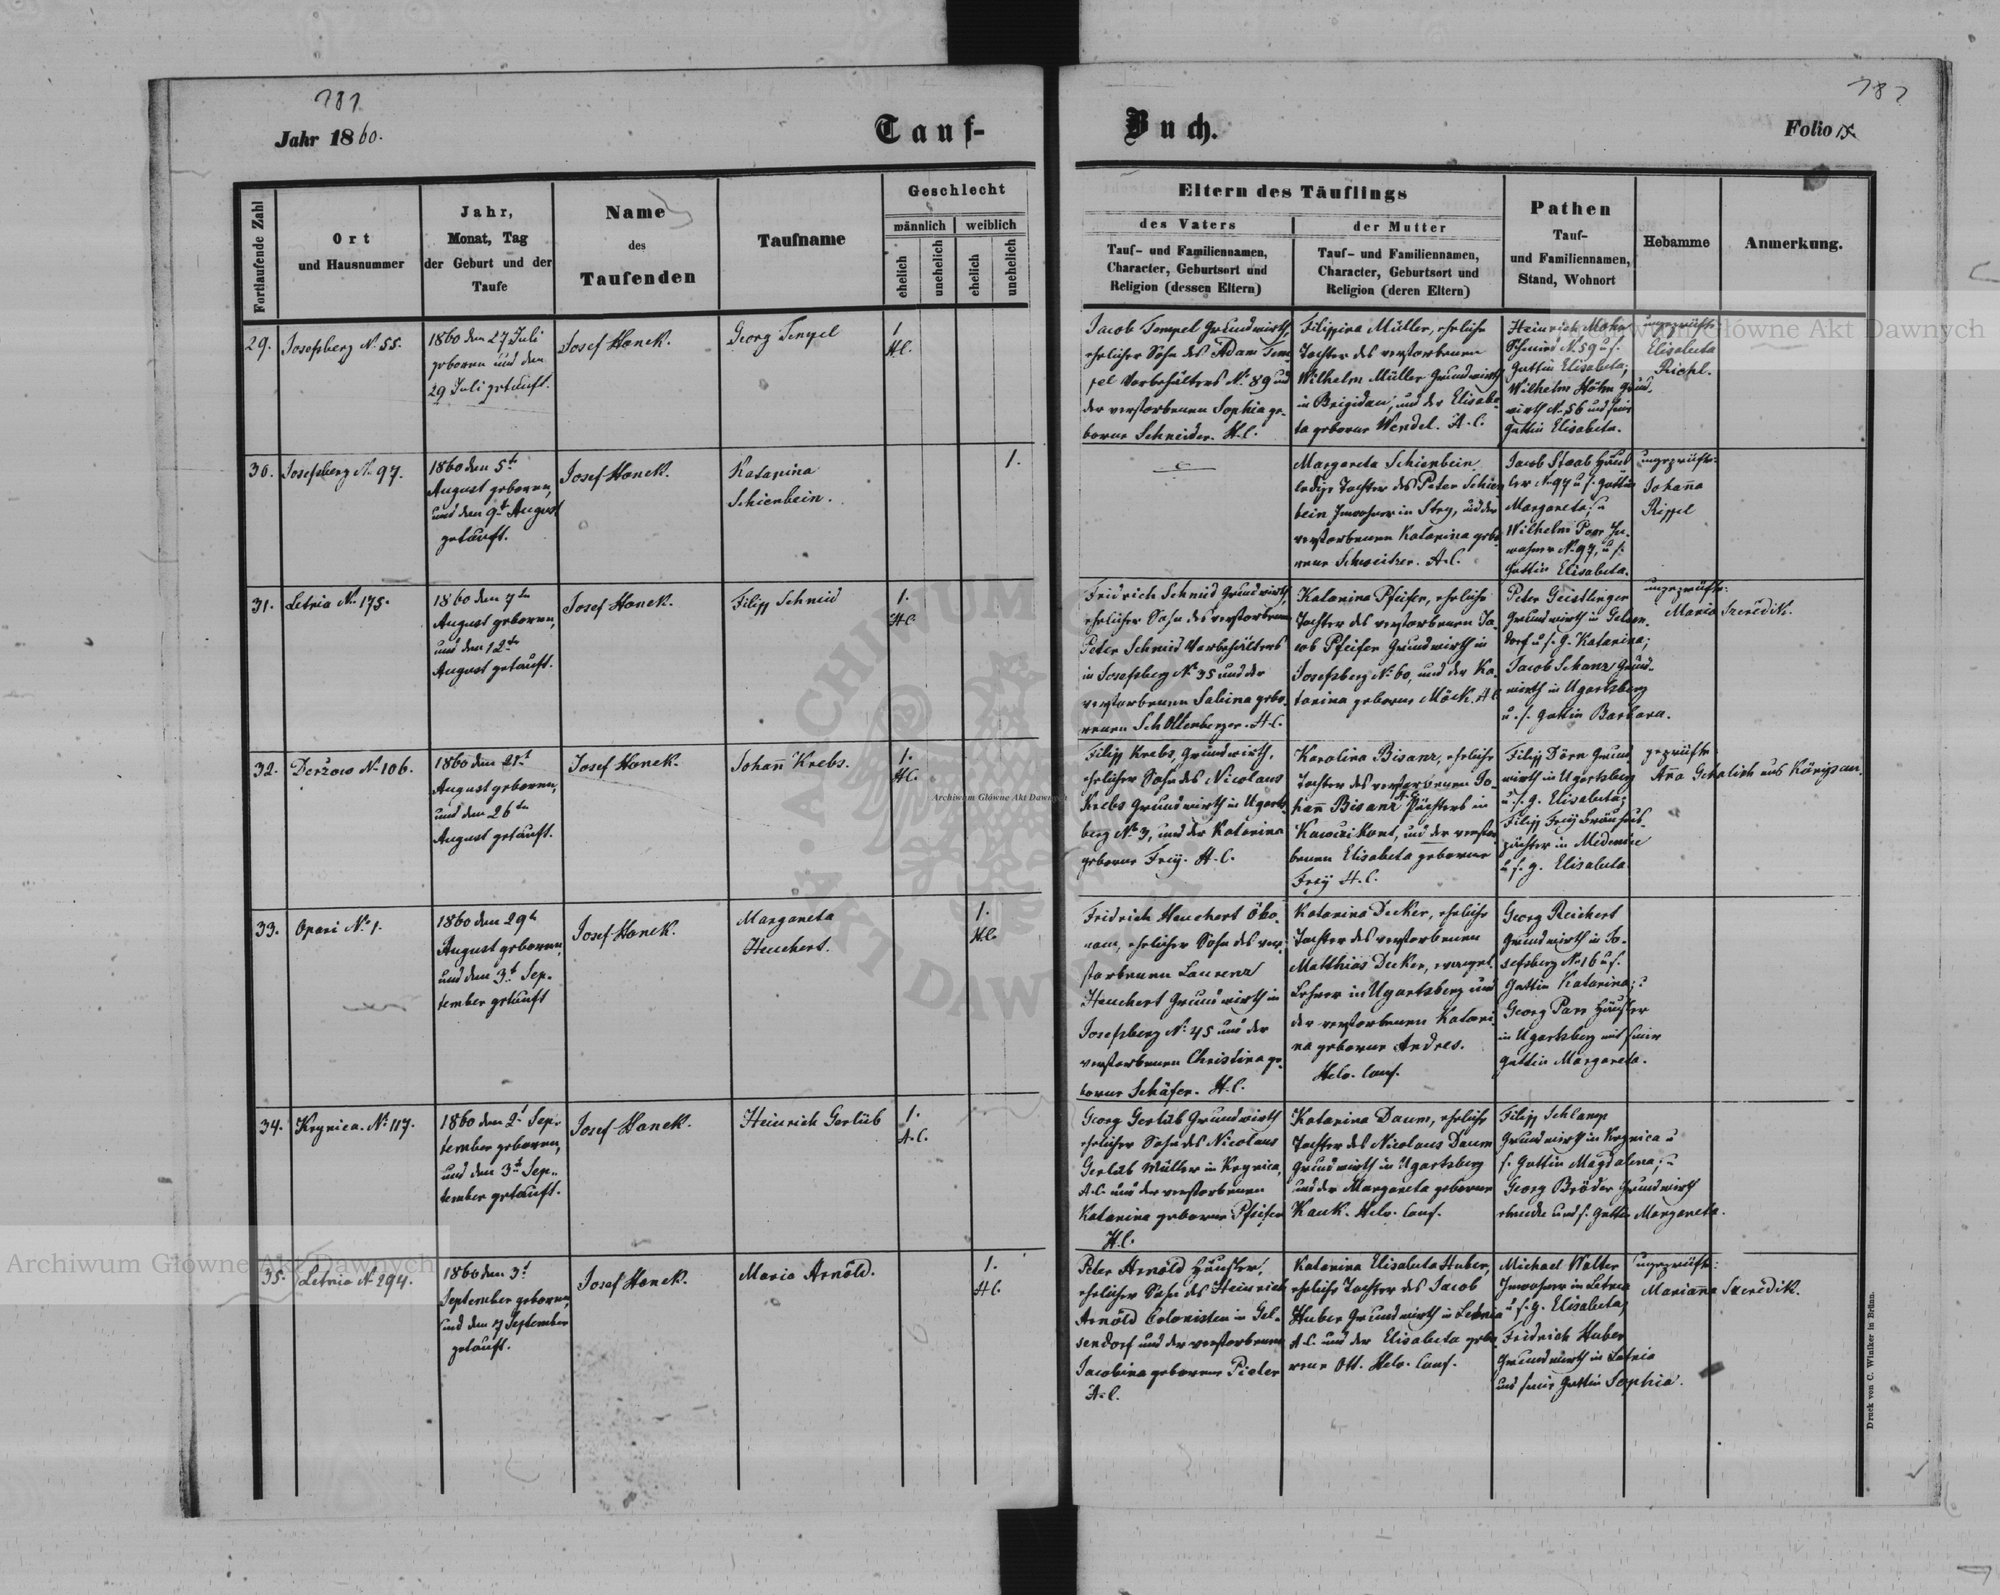 781
Jahr 1860.
Tauf-
Fortlaufende Zahl
Ort
und Hausnummer
Jahr,
Monat, Tag
der Geburt und der
Taufe
Name
des
Taufenden
Taufname
Geschlecht
männlich
weiblich
ehelich
unehelich
ehelich
unehelich
29.
Josefsberg No. 55.
1860 den 27 Juli
geboren und den
29 Juli getauft.
Josef Hanek.
Georg Tempel
1.
H.C.
30.
Josefsberg No. 97.
1860 den 5t
August geboren,
und den 9t August
getauft.
Josef Hanek.
Katarina
Schienbein.
1.
31.
Letnia No. 175.
1860 den 7ten
August geboren,
und den 12ten
August getauft.
Josef Hanek.
Filipp Schmid
1.
H.C.
32.
Derżow No. 106.
1860 den 21t
August geboren,
und den 26ten
August getauft.
Josef Hanek.
Johann Krebs.
1.
H.C.
33.
Opari No. 1.
1860 den 29t
August geboren,
und den 3t Sep-
tember getauft
Josef Hanek.
Margareta
Heuchert.
1.
H.C.
34.
Krynica. No. 117.
1860 den 2t Sep-
tember geboren,
und den 3t Sep-
tember getauft.
Josef Hanek.
Heinrich Gerlüb
1.
A.C.
35.
Letnia No. 294.
1860 den 3t
September geboren,
und den 7 September
getauft.
Josef Hanek.
Maria Arnold.
1.
H.C.
Buch.
787
Folio IX.
Eltern des Täuflings
des Vaters
Tauf- und Familiennamen,
Character, Geburtsort und
Religion (dessen Eltern)
der Mutter
Tauf- und Familiennamen,
Character, Geburtsort und
Religion (deren Eltern)
Pathen
Tauf-
und Familiennamen,
Stand, Wohnort
Hebamme
Anmerkung.
Jacob Tempel Grundwirth,
ehelicher Sohn des Adam Tem-
pel Vorbehälters No. 89 und
der verstorbenen Sophia ge-
borne Schneider. H.C.
Filippina Müller, eheliche
Tochter des verstorbenen
Wilhelm Müller Grundwirth
in Brigidau, und der Elisabe-
ta geborne Wendel. A.C.
Heinrich Mohr
Schmied No. 59 u. s.
Gattin Elisabeta;
Wilhelm Höhn Grund-
wirth No. 56 und seine
Gattin Elisabeta.
ungeprüfte:
Elisabeta
Riehl.
Margareta Schienbein
ledige Tochter des Peter Schien-
bein Inwohner in Stry, und der
verstorbenen Katarina gebo-
rene Schweitzer. A.C.
Jacob Staab Häus-
ler No. 97 u. s. Gattin
Margareta; u
Wilhelm Paar In-
wohner No. 97, u. s.
Gattin Elisabeta.
ungeprüfte:
Johanna
Rippel
Fridrich Schmid Grundwirth,
ehelicher Sohn des verstorbenen
Peter Schmid Vorbehälters
in Josefsberg No. 35 und der
verstorbenen Sabina gebo-
renen Schollenberger. H.C.
Katarina Pfeifer, eheliche
Tochter des verstorbenen Ja-
cob Pfeifer Grundwirth in
Josefsberg No. 60, und der Ka-
tarina geborne Möck. A.C.
Peter Geistlinger
Grundwirth in Gelsen-
dorf u. s. G. Katarina;
Jacob Schanz Grund-
wirth in Ugartsberg
u. s. Gattin Barbara.
ungeprüfte:
Maria Szeredik.
Filipp Krebs, Grundwirth,
ehelicher Sohn des Nicolaus
Krebs Grundwirth in Ugarts-
berg No. 3, und der Katarina
geborne Frey. H.C.
Karolina Bisanz, eheliche
Tochter des verstorbenen Jo-
hann Bisanz Pächters in
A.C.
und der verstor-
benen Elisabeta geborne
Frey H.C.
Filipp Dörn Grund-
wirth in Ugartsberg
u. s. G. Elisabeta;
Filipp Frey
pächter in Medenice
u. s. G. Elisabeta
geprüfte:
Anna Schalich aus Königsau.
Fridrich Heuchert Öko-
nom, ehelicher Sohn des ver-
storbenen Laurenz
Heuchert Grundwirth in
Josefsberg No. 45 und der
verstorbenen Christina ge-
borne Schäfer. H.C.
Katarina Decker, eheliche
Tochter des verstorbenen
Matthias Decker, evangel.
Lehrer in Ugartsberg und
der verstorbenen Katari-
na geborne Andres.
Helv. Conf.
Georg Reichert
Grundwirth in Jo-
sefsberg No. 16 u. s.
Gattin Katarina; u
Georg Parr Häusler
in Ugartsberg mit seiner
Gattin Margareta.
Georg Gerlüb Grundwirth
ehelicher Sohn des Nicolaus
Gerlüb Müller in Krynica,
A.C. und der verstorbenen
Katarina geborne Pfeifer
H.C.
Katarina Daum, eheliche
Tochter des Nicolaus Daum
Grundwirth in Ugartsberg
und der Margareta geborne
Kauk. Helv. Conf.
Filipp Schlamp
Grundwirth in Krynica u
s. Gattin Magdalena; u
Georg Bröder Grundwirth
und s. Gattin Margareta.
Peter Arnold Häusler,
ehelicher Sohn des Heinrich
Arnold Colonisten in Gel-
sendorf und der verstorbenen
Jacobina geborene Pieler
A.C.
Katarina Elisabeta Huber,
eheliche Tochter des Jacob
Huber Grundwirth in Letnia
A.C. und der Elisabeta gebo-
rene Ott. Helv. Conf.
Michael Walter
Inwohner in Letnia
u. s. G. Elisabeta;
Fridrich Huber
Grundwirth in Letnia
und seine Gattin Sophia.
ungeprüfte:
Marianna Szeredik.
Druck von C. Winiker in Brünn.
Archiwum Główne Akt Dawnych
Archiwum Główne Akt Dawnych
Archiwum Główne Akt Dawnych